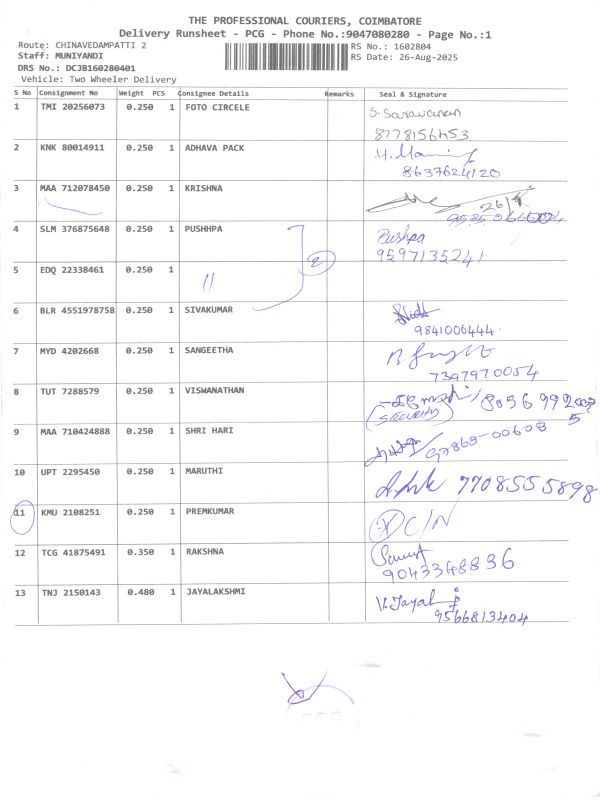 THE PROFESSIONAL COURIERS, COIMBATORE
Delivery Runsheet - PCG - Phone No.:9047080280 - Page No.:1
Route: CHINAVEDAMPATTI 2
RS No.: 1602804
Staff: MUNIYANDI
RS Date: 26-Aug-2025
DRS No.: DCJB160280401
Vehicle: Two Wheeler Delivery
S No Consignment No Weight PCS Consignee Details Remarks Seal & Signature
1 TMI 20256073 0.250 1 FOTO CIRCELE S. Saravanan
8778156453
2 KNK 80014911 0.250 1 ADHAVA PACK
8637624120
3 MAA 712078450 0.250 1 KRISHNA 26/
4 SLM 376875648 0.250 1 PUSHHPA Pushpa
9597135241
2
5 EDQ 22338461 0.250 1
"
6 BLR 4551978758 0.250 1 SIVAKUMAR
9841006444
7 MYD 4202668 0.250 1 SANGEETHA
7397970054
8 TUT 7288579 0.250 1 VISWANATHAN
(SECURITY)
9 MAA 710424888 0.250 1 SHRI HARI 97868-00608
10 UPT 2295450 0.250 1 MARUTHI 7708555898
11 KMU 2108251 0.250 1 PREMKUMAR C/N
12 TCG 41875491 0.350 1 RAKSHNA
9043348836
13 TNJ 2150143 0.480 1 JAYALAKSHMI V. Jayal
9566813404